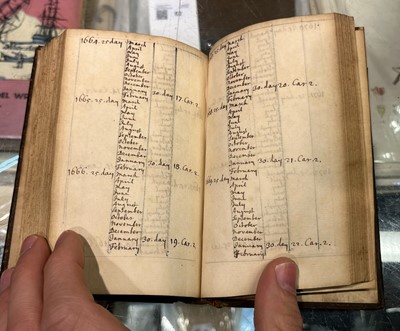 1664. 25. day March
April
May
June
July
August
September
October
November
December
January 30. day 17. Car. 2.
February
1665. 25. day March
April
May
June
July
August
September
October
November
December
January 30. day 18. Car. 2.
February
1666. 25. day March
April
May
June
July
August
September
October
November
December
January 30. day 19. Car. 2.
February
day March
April
May
June
July
August
September
October
November
December
January 30. day 20. Car. 2.
February
day March
April
May
June
July
August
September
October
November
December
January 30. day 21. Car. 2.
February
25. day March
April
May
June
July
August
September
October
November
December
January 30. day 22. Car. 2.
February